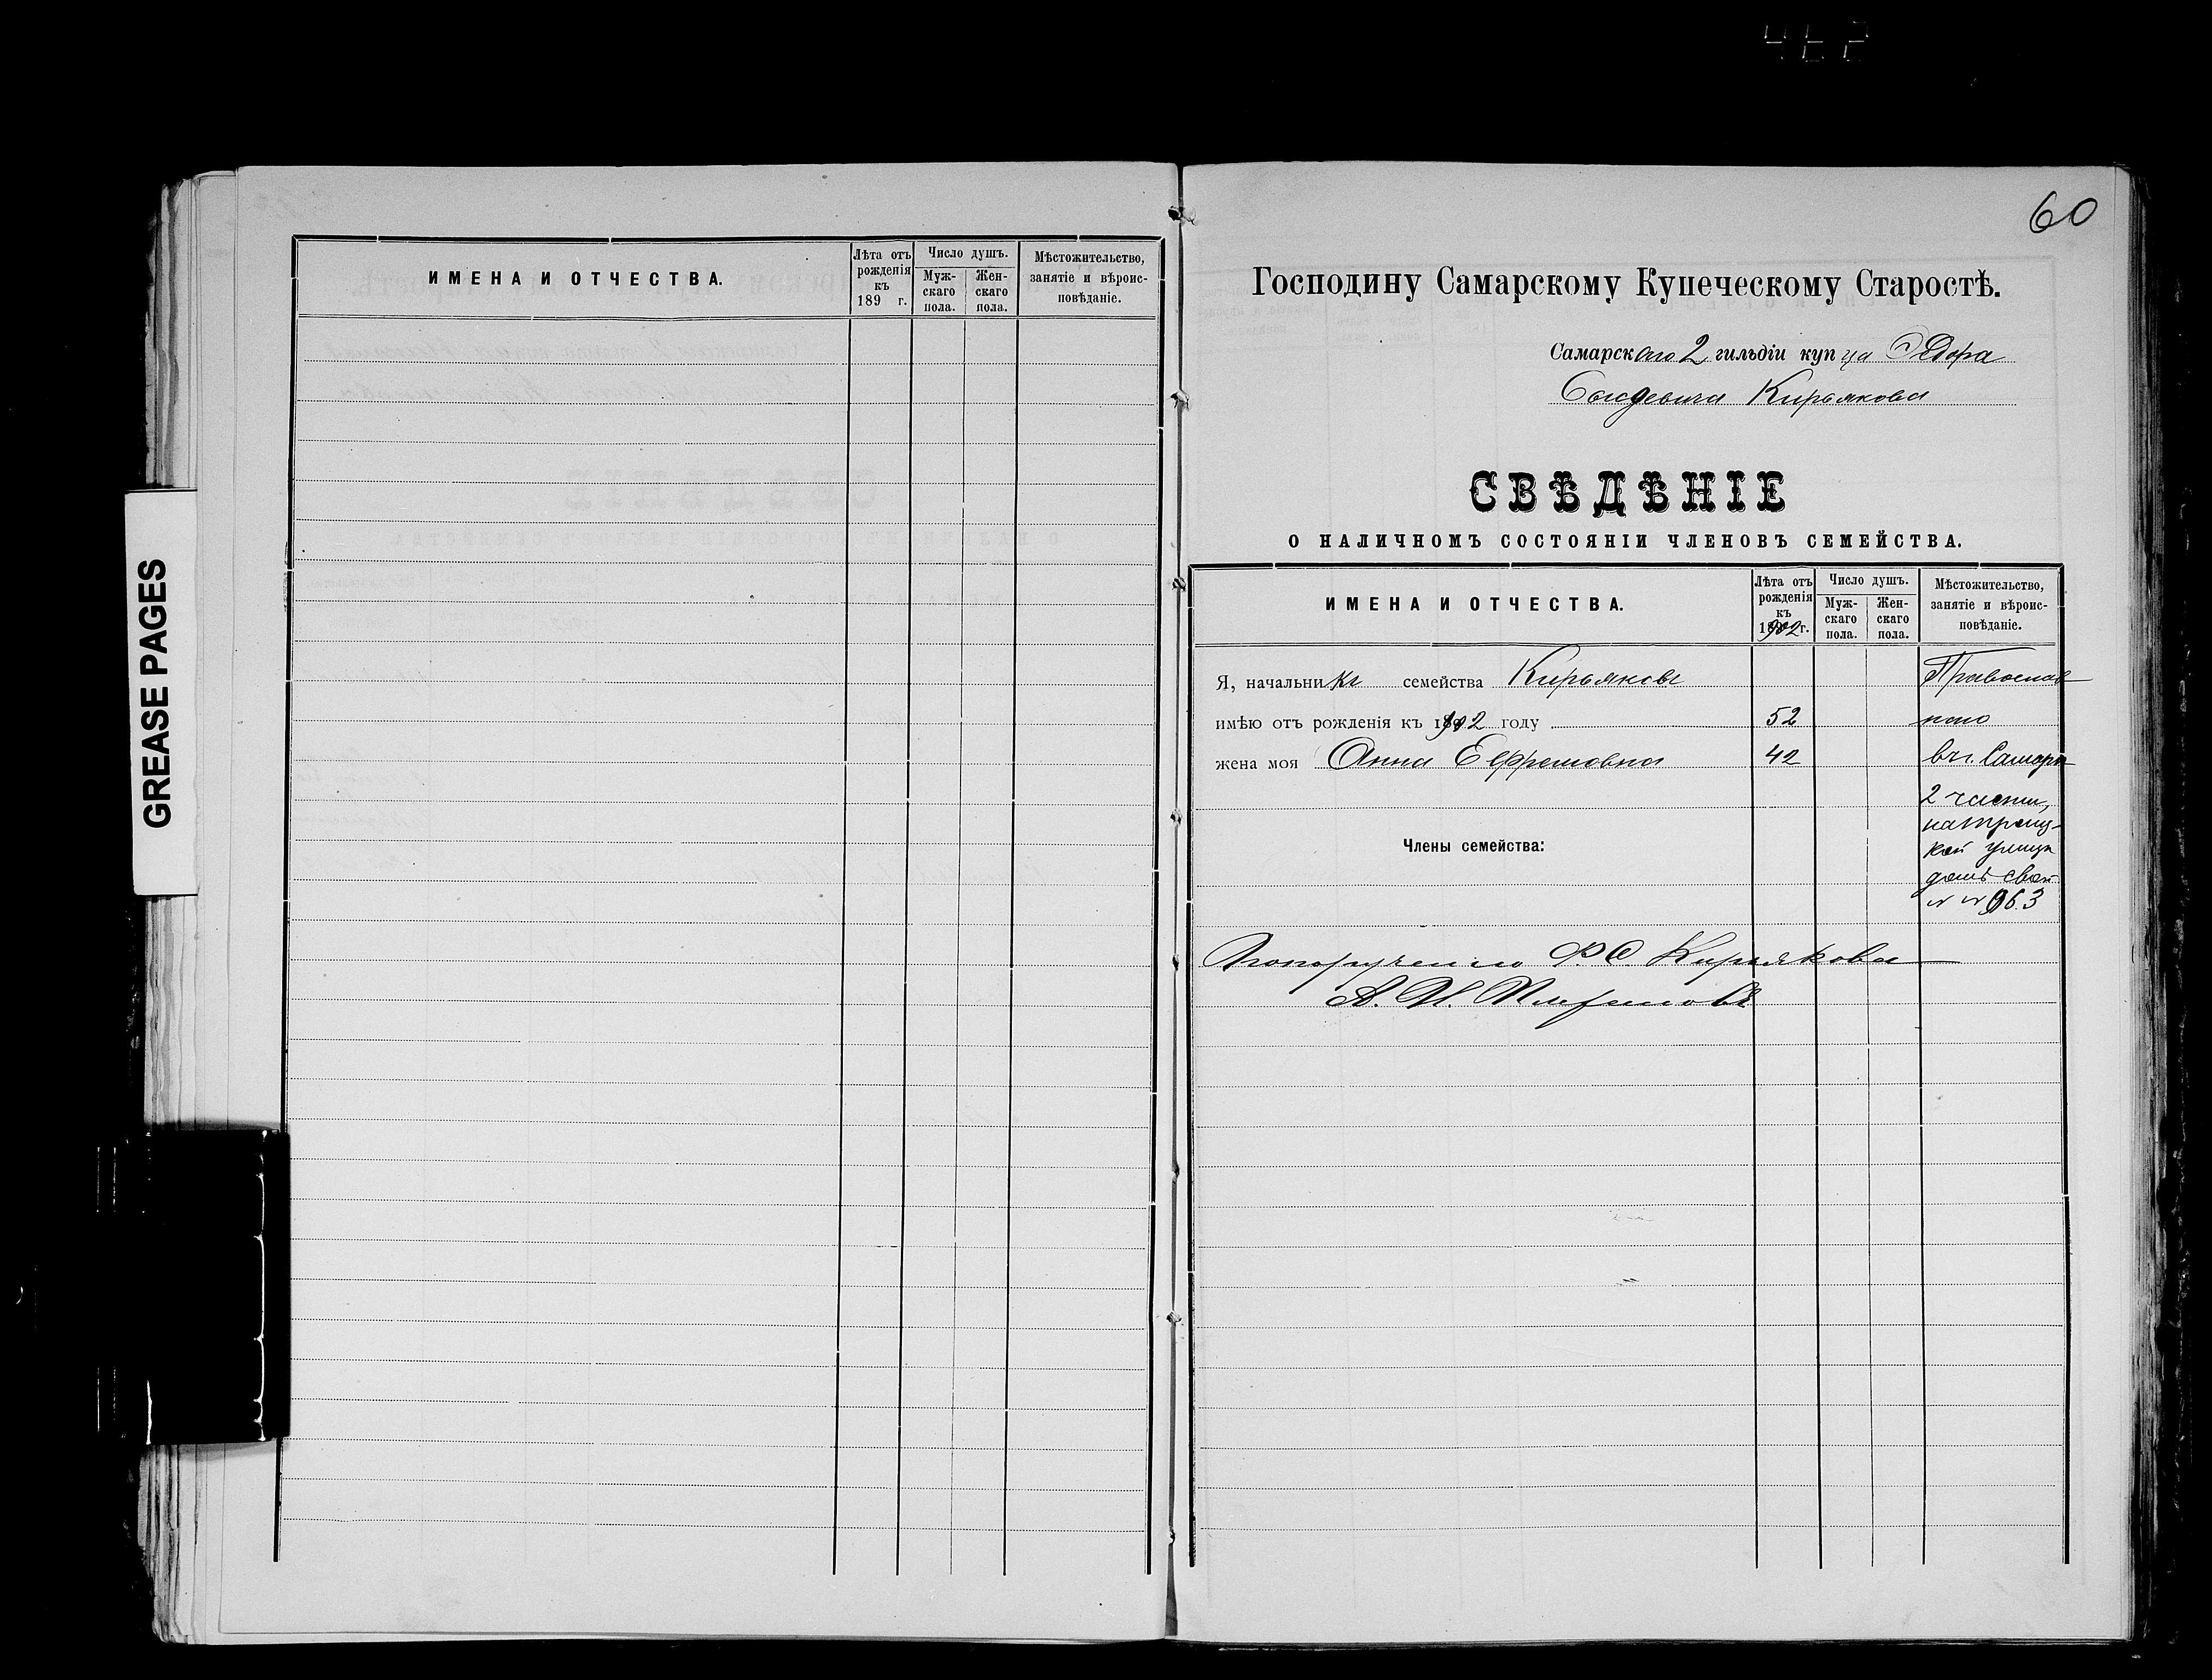 GREASE PAGES
ИМЕНА И ОТЧЕСТВА.
Лѣта отъ рожденія къ 189 г.
Число душъ.
Муж-скаго пола.
Жен-скаго пола.
Мѣстожительство, занятіе и вѣроис-повѣданіе.
60
Господину Самарскому Купеческому Старостѣ.
Самарскаго 2 гильдіи купца Ѳедора
Кирьякова
СВѢДѢНІЕ
О НАЛИЧНОМЪ СОСТОЯНІИ ЧЛЕНОВЪ СЕМЕЙСТВА.
ИМЕНА И ОТЧЕСТВА.
Лѣта отъ рожденія къ 1902 г.
Число душъ.
Муж-скаго пола.
Жен-скаго пола.
Мѣстожительство, занятіе и вѣроис-повѣданіе.
Я, начальникъ семейства Кирьяковъ Православ
имѣю отъ рожденія къ 1902 году 52 наго
жена моя Анна Ефремовна 42 въ г. Самарѣ
2 части,
на Троиц-
кой улицѣ
домъ свой
№ 963
Члены семейства:
По порученію Ѳ. С. Кирьякова
А. И.